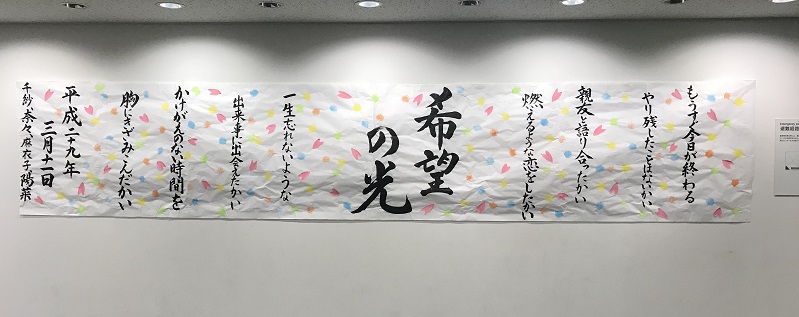 もうすぐ今日が終わる
やり残したことはないかい
親友と語り合ったかい
燃えるような恋をしたかい
希望
の光
一生忘れないような
出来事に出会えたかい
かけがえのない時間を
胸にきざみこんだかい
平成二十九年
三月十一日
千紗、奈々、麻衣子、陽菜